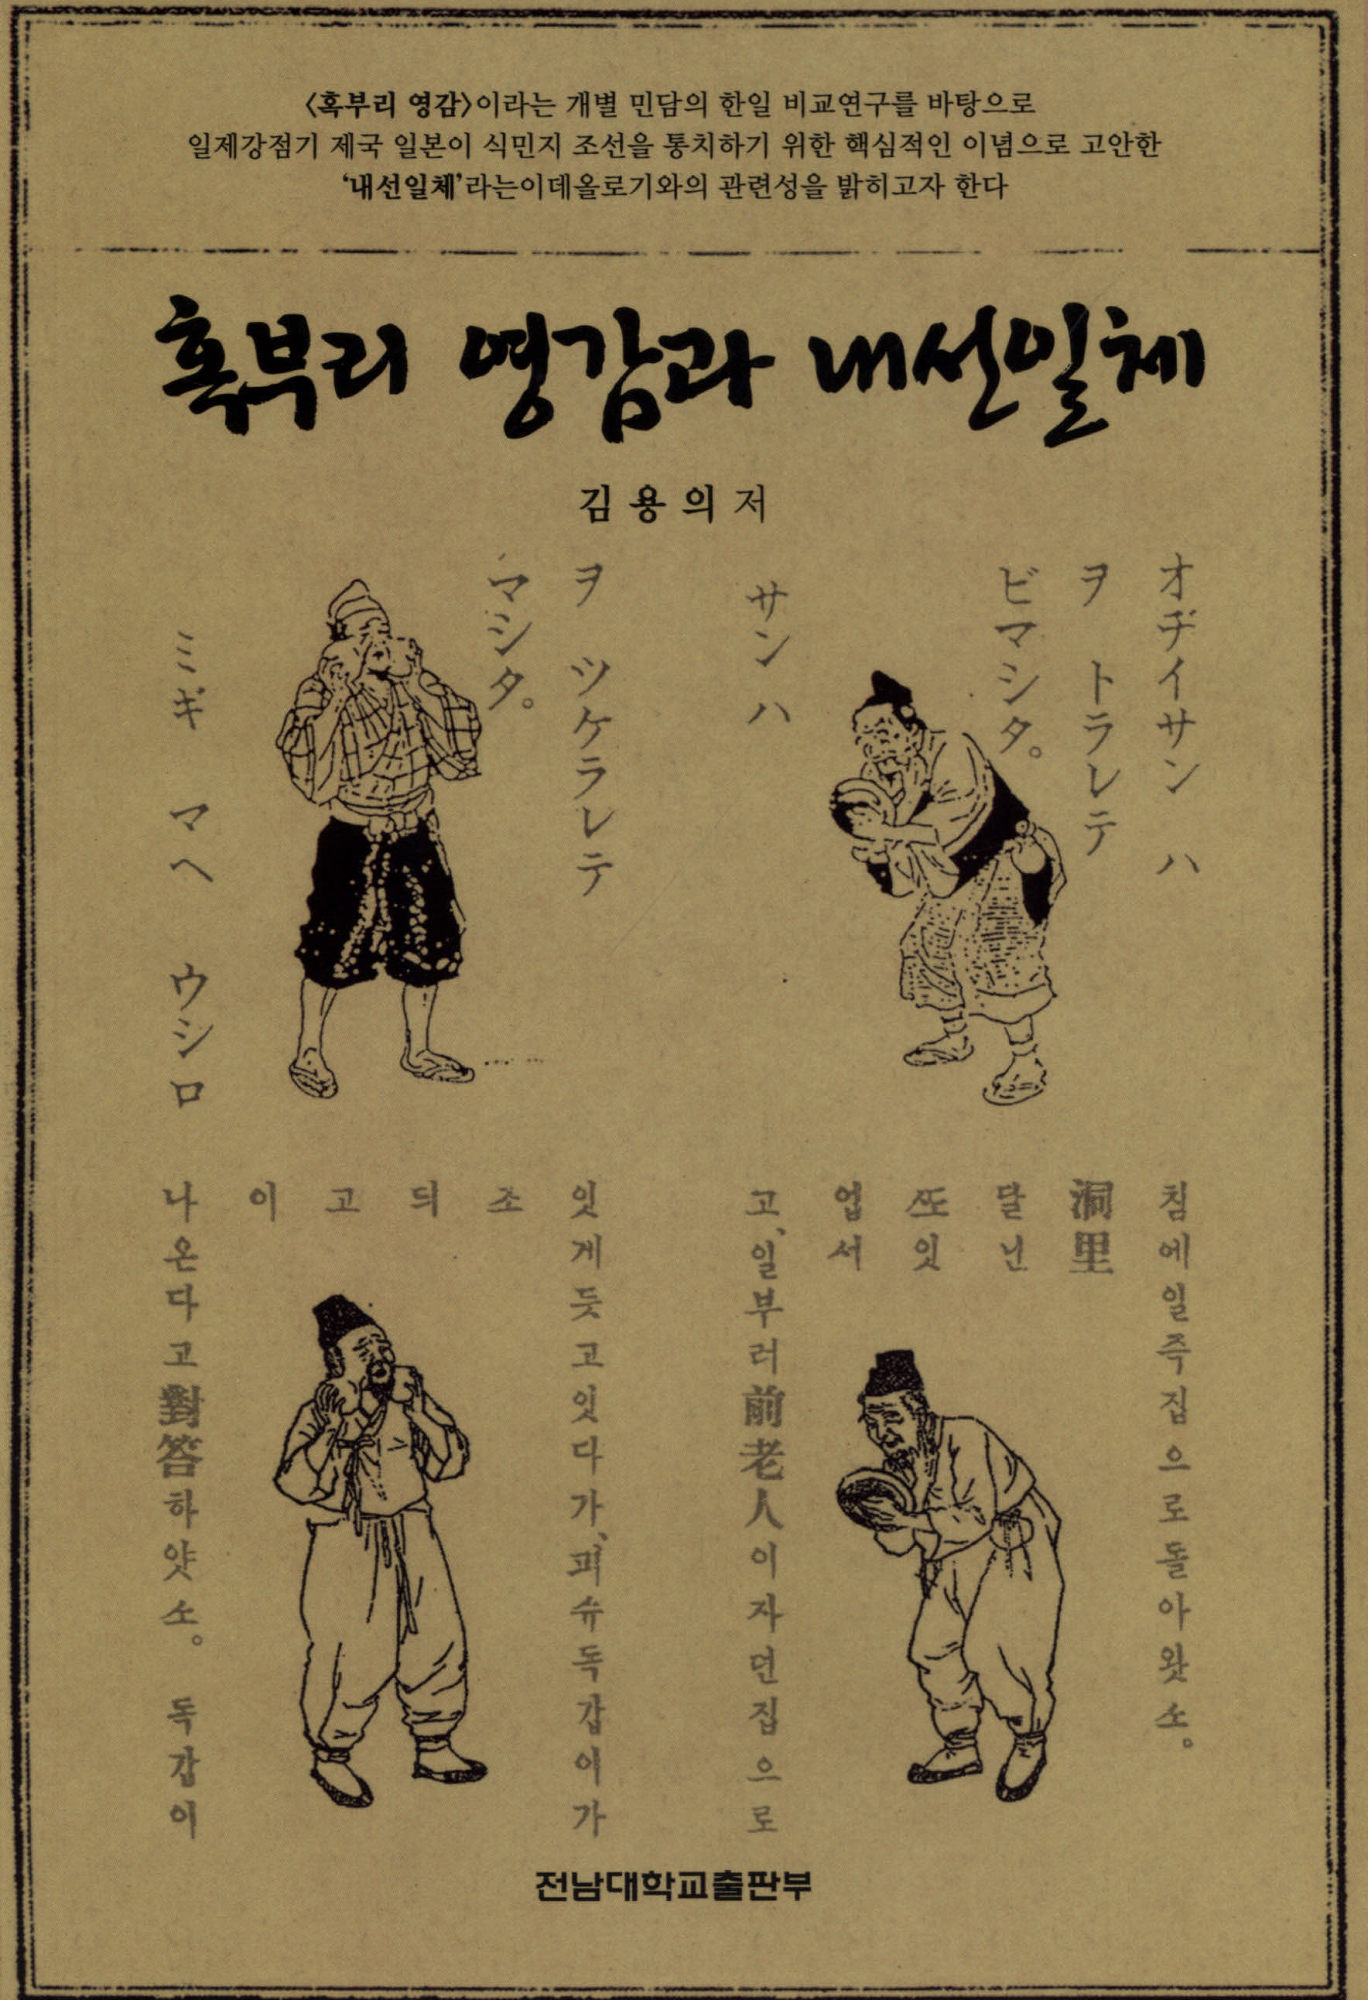 <혹부리 영감>이라는 개별 민담의 한일 비교연구를 바탕으로
일제강점기 제국 일본이 식민지 조선을 통치하기 위한 핵심적인 이념으로 고안한
‘내선일체’라는이데올로기와의 관련성을 밝히고자 한다
혹부리 영감과 내선일체
김용의 저
オヂイサン ハ
ヲ トラレテ
ビマシタ。
サンハ
ヲ ツケラレテ
マシタ。
ミギ マヘ ウシロ
침에일즉집으로돌아왓소。
洞里
달닌
ᄯᅩ잇
업서
고、일부러前老人이자던집으로
잇게듯고잇다가、괴슈독갑이가
조
듸
고
이
나온다고對答하얏소。 독갑이
전남대학교출판부